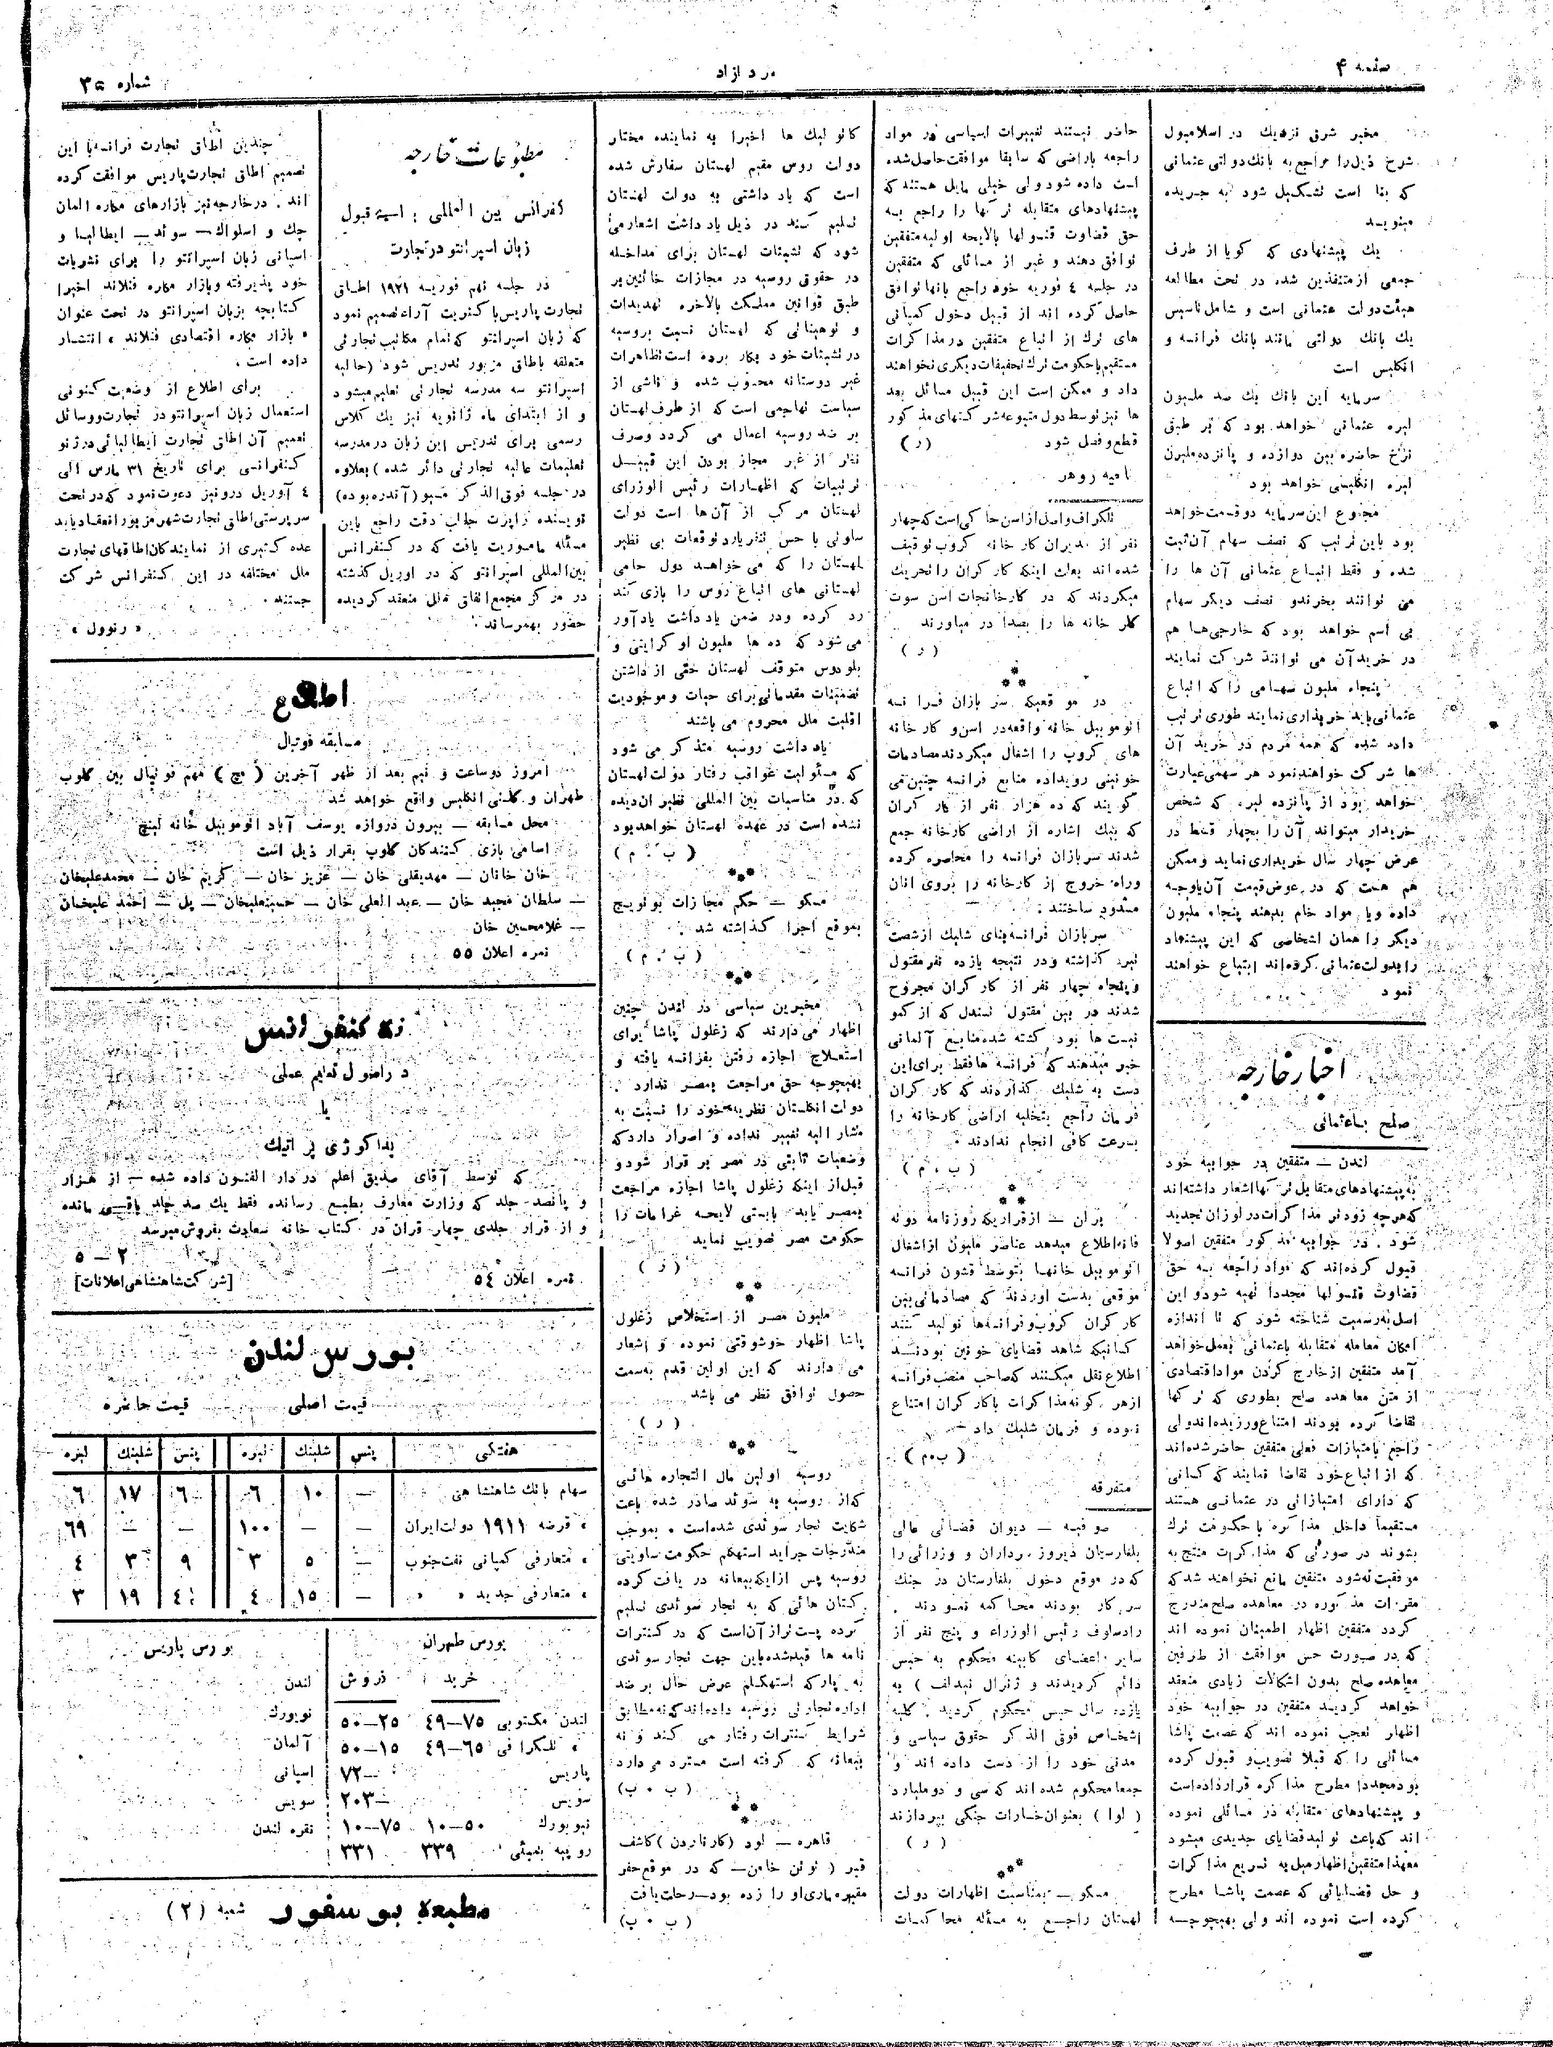 صفحه ۴
مرد ازاد
شماره ۳۵
مخبر شرق نزدیك در اسلامبول
شرح ذیل را مراجع به بانك دولتی عثمانی
که بنا است تشکیل شود به جریده
مینویسد
یك پیشنهادی که گویا از طرف
جمعی از متنفذین شده در تحت مطالعه
هیئت دولت عثمانی است و شامل تاسیس
یك بانك دولتی مانند بانك فرانسه و
انگلیس است
سرمایه این بانك یك صد ملیون
لیره عثمانی خواهد بود که بر طبق
نرخ حاضره بین دوازده و پانزده ملیون
لیره انگلیسی خواهد بود
مجموع این سرمایه دو قسمت خواهد
بود باین ترتیب که نصف سهام آن ثبت
شده و فقط اتباع عثمانی آن ها را
می توانند بخرند و نصف دیگر سهام
بی اسم خواهد بود که خارجی‌ها هم
در خرید آن می توانند شرکت نمایند
پنجاه ملیون سهامی را که اتباع
عثمانی باید خریداری نمایند طوری ترتیب
داده شده که همه مردم در خرید آن
ها شرکت خواهند نمود هر سهمی عبارت
خواهد بود از پانزده لیره که شخص
خریدار میتواند آن را بچهار قسط در
عرض چهار سال خریداری نماید و ممکن
هم هست که در عوض قیمت آن یا وجه
داده و یا مواد خام بدهند پنجاه ملیون
دیگر را همان اشخاصی که این پیشنهاد
را بدولت عثمانی کرده‌اند ابتیاع خواهند
نمود
اخبار خارجه
صلح با عثمانی
لندن — متفقین در جوابیه خود
به پیشنهادهای متقابل ترکها اشعار داشته‌اند
که هرچه زودتر مذاکرات در لوزان تجدید
شود . در جوابیه مذکور متفقین اصولا
قبول کرده‌اند که مواد راجعه به حق
قضاوت قنسولها مجدداً تهیه شود و این
اصل به رسمیت شناخته شود که تا اندازه
امکان معامله متقابله با عثمانی بعمل خواهد
آمد متفقین از خارج کردن مواد اقتصادی
از متن معاهده صلح بطوری که ترکها
تقاضا کرده بودند امتناع ورزیده‌اند ولی
راجع بامتیازات فعلی متفقین حاضر شده‌اند
که از اتباع خود تقاضا نمایند که کسانی
که دارای امتیازاتی در عثمانی هستند
مستقیماً داخل مذاکره با حکومت ترك
بشوند در صورتی که مذاکرات منتج به
موفقیت نشود متفقین مانع نخواهند شد که
مقررات مذکوره در معاهده صلح مندرج
گردد متفقین اظهار اطمینان نموده اند
که در صورت حسن موافقت از طرفین
معاهده صلح بدون اشکالات زیادی منعقد
خواهد گردید متفقین در جوابیه خود
اظهار تعجب نموده اند که عصمت پاشا
مسائلی را که قبلا تصویب و قبول کرده
بود مجدداً مطرح مذاکره قرار داده است
و پیشنهادهای متقابله در مسائلی نموده
اند که باعث تولید قضایای جدیدی میشود
معهذا متفقین اظهار میل به تسریع مذاکرات
و حل قضایائی که عصمت پاشا مطرح
کرده است نموده اند ولی بهیچوجه
حاضر نیستند تغییرات اسیاسی در مواد
راجعه باراضی که سابقا موافقت حاصل شده
است داده شود ولی خیلی مایل هستند که
پیشنهادهای متقابله ترکها را راجع به
حق قضاوت قنسولها بالایحه اولیه متفقین
توافق دهند و غیر از مسائلی که متفقین
در جلسه ۴ فوریه خود راجع بانها توافق
حاصل کرده اند از قبیل دخول کمپانی
های ترك از اتباع متفقین در مذاکرات
مستقیم با حکومت ترك تخفیفات دیگری نخواهند
داد و ممکن است این قبیل مسائل بعد
ها نیز توسط دول متبوعه شرکتهای مذکور
قطع و فصل شود
(ر)
ناحیه روهر
تلگراف واصل از اسن حاکی است که چهار
نفر از مدیران کارخانه کروپ توقیف
شده اند بعلت اینکه کارکران را تحریك
میکردند که در کارخانجات اسن سوت
کلر خانه ها را بصدا در میاورند
(ر)
در موقعیکه سربازان فرانسه
اتوموبیل خانه واقعه در اسن و کارخانه
های کروپ را اشغال میکردند مصادمات
خونینی رویداده منابع فرانسه چنین می
گویند که ده هزار نفر از کارکران
که بیك اشاره از اراضی کارخانه جمع
شدند سربازان فرانسه را محاصره کرده
وراه خروج از کارخانه را بروی انان
مسدود ساختند .
سربازان فرانسه بنای شلیك از شصت
تیر گذاشته و در نتیجه یازده نفر مقتول
و پنجاه چهار نفر از کارکران مجروح
خبر میدهند که فرانسه ها فقط برای این
دست به شلیك گذاردند که کارکران
فرمان راجع بتخلیه اراضی کارخانه را
بسرعت کافی انجام ندادند •
(ب . م)
برلن — از قراریکه روزنامه دوته
موقعی بدست اوردند که مصادماتی بین
کارکران کروپ و فرانسه‌ها تولید کنند
کسانیکه شاهد قضایای خونین بودند
اطلاع نقل میکنند که صاحب منصب فرانسه
از هر گونه مذاکرات با کارکران امتناع
نموده و فرمان شلیك داد —
(ب . م)
متفرقه
صوفیه — دیوان قضائی عالی
که در موقع دخول بلغارستان در جنك
سرکار بودند محاکمه نمودند .
رادسلوف رئیس الوزراء و پنج نفر از
سایر اعضای کابینه محکوم به حبس
یازده سال حبس محکوم گردید . کلیه
اشخاص فوق الذکر حقوق سیاسی و
مدنی خود را از دست داده اند و
جمعاً محکوم شده اند که سی و دو ملیارد
(لوا) بعنوان خسارات جنگی بپردازند
(ر)
مسکو — بمناسبت اظهارات دولت
لهستان راجع به مسئله محاکمات
کاتولیك ها اخیرا به نماینده مختار
دولت روس مقیم لهستان سفارش شده
است که یاد داشتی به دولت لهستان
تسلیم کند در ذیل یاد داشت اشعار می
شود که تشبثات لهستان برای مداخله
در حقوق روسیه در مجازات خائنین بر
طبق قوانین مملکت بالاخره تهدیدات
و توهیناتی که لهستان نسبت بروسیه
در تشبثات خود بکار برده است تظاهرات
غیر دوستانه محسوب شده و ناشی از
سیاست تهاجمی است که از طرف لهستان
بر ضد روسیه اعمال می گردد و صرف
نظر از غیر مجاز بودن این قبیل
ترتیبات که اظهارات رئیس الوزرای
لهستان مرکب از آن‌ها است دولت
ساوتی با حس تنفر یاد توقعات بی نظیر
لهستان را که می خواهند دول حامی
لهستانی های اتباع روس را بازی کند
رد کرده و در ضمن یاد داشت یادآور
می‌شود که ده ها ملیون اوکراینی و
بلودوس متوقف لهستان حتی از داشتن
تضمینات مقدماتی برای حیات و موجودیت
اقلیت ملل محروم می باشند
یاد داشت روسیه متذکر می شود
که مسئولیت عواقب رفتار دولت لهستان
که در مناسبات بین المللی نظیر ان دیده
نشده است در عهده لهستان خواهد بود
(ب . م)
مسکو — حکم مجازات بوتویچ
بموقع اجرا گذاشته شد
(ب . م)
مخبرین سیاسی در لندن چنین
اظهار می‌دارند که زغلول پاشا برای
استعلاج اجازه رفتن بفرانسه یافته و
بهیچوجه حق مراجعت بمصر ندارد .
دولت انگلستان نظریه خود را نسبت به
مشار الیه تغییر نداده و اصرار دارد که
وضعیات ثابتی در مصر بر قرار شود و
قبل از اینکه زغلول پاشا اجازه مراجعت
بمصر یابد بایستی لایحه غرامات را
حکومت مصر تصویب نماید
(ر)
ملیون مصر از استخلاص زغلول
پاشا اظهار خوشوقتی نموده و اشعار
می دارند که این اولین قدم بسمت
حصول توافق نظر می باشد
(ر)
روسیه اولین مال التجاره هائی
که از روسیه به سوئد صادر شده باعث
شکایت تجار سوئدی شده است • بموجب
مندرجات جراید استهکلم حکومت ساویتی
روسیه پس از اینکه بیعانه در یافت کرده
کتان هائی که به تجار سوئدی تسلیم
کرده پست تر از آن است که در کنترات
نامه ها قید شده باین جهت تجار سوئدی
به پارکه استهکلم عرض حال بر ضد
اداره تجارتی روسیه داده‌اند که نه مطابق
شرایط کنترات رفتار می کنند و نه
بیعانه که گرفته است مسترد می دارد
(ب . پ)
قاهره — لورد (کارناردن) کاشف
قبر (توتن خامن — که در موقع حفر
مقبره ماری او را زده بود — رحلت یافت
(ب . پ)
مطبوعات خارجه
کنفرانس بین المللی راسیة قبول
زبان اسپرانتو در تجارت
در جلسه نهم فوریه ۱۹۲۱ اطاق
تجارت پاریس با کثریت آراء تصمیم نمود
که زبان اسپرانتو که تمام مکاتیب تجارتی
متعلقه باطاق مزبور تدریس شود (حالیه
اسپرانتو سه مدرسه تجارتی تعلیم میشود
و از ابتدای ماه ژانویه نیز یك کلاس
رسمی برای تدریس این زبان در مدرسه
تعلیمات عالیه تجارتی دائر شده) بعلاوه
در جلسه فوق الذکر مسیو (آندره بوده)
نویسنده راپرت جالب دقت راجع باین
مسئله ماموریت یافت که در کنفرانس
بین المللی اسپرانتو که در اوریل گذشته
در مرکز مجمع اتفاق ملل منعقد گردیده
حضور بهمرساند
چندین اطاق تجارت فرانسه با این
تصمیم اطاق تجارت پاریس موافقت کرده
اند . در خارجه نیز بازارهای مکاره المان
چك و اسلواك — سوئد — ایطالیا و
اسپانی زبان اسپرانتو را برای نشریات
خود پذیرفته و بازار مکاره فنلاند اخیرا
کتابچه بزبان اسپرانتو در تحت عنوان
« بازار مکاره اقتصادی فنلاند » انتشار
داده است .
برای اطلاع از وضعیت کنونی
استعمال زبان اسپرانتو در تجارت و وسائل
تعمیم آن اطاق تجارت ایطالیائی در ژنو
کنفرانسی برای تاریخ ۳۱ مارس الی
۴ آوریل در ونیز دعوت نمود که در تحت
سرپرستی اطاق تجارت شهر مزبور انعقاد یابد
عده کثیری از نمایندکان اطاقهای تجارت
ملل مختلفه در این کنفرانس شرکت
جستند .
« رنوول »
اطلاع
مسابقه فوتبال
امروز دو ساعت و نیم بعد از ظهر آخرین (مچ) مهم فوتبال بین کلوب
طهران و کلنی انکلیس واقع خواهد شد
محل مسابقه — بیرون دروازه یوسف آباد اتوموبیل خانه لینچ
اسامی بازی کنندکان کلوب بقرار ذیل است
خان خانان — مهدیقلی خان — عزیز خان — کریم خان — محمدعلیخان
— سلطان مجید خان — عبدالعلی خان — حسینعلیخان — پل — احمد علیخان
— غلامحسین خان
نمره اعلان ۵۵
نه کنفرانس
در اصول تعلیم عملی
یا
پداکوژی پراتیك
که توسط آقای صدیق اعلم در دار الفنون داده شده — از هزار
و پانصد جلد که وزارت معارف بطبع رسانده فقط یك صد جلد باقی مانده
و از قرار جلدی چهار قران در کتاب خانه سعادت بفروش میرسد
۲ — ۵
نمره اعلان ۵۴
[شرکت شاهنشاهی اعلانات]
بورس لندن
قیمت اصلی قیمت حاضره
هفتگی پنس شلینك لیره پنس شلینك لیره
سهام بانك شاهنشاهی — ۱۰ ۶ ۶ ۱۷ ۶
« قرضه ۱۹۱۱ دولت ایران — — ۱۰۰ — — ۶۹
« متعارفی کمپانی نفت جنوب — ۵ ۳ ۹ ۳ ۴
« متعارفی جدید « « — ۱۵ ۴ ۴½ ۱۹ ۳
بورس طهران
خرید فروش
لندن مکتوبی ۷۵—۴۹ ۲۵—۵۰
« تلگرافی ۶۵—۴۹ ۱۵—۵۰
پاریس —۷۲
سویس —۲۰۳
نیویورك ۵۰—۱۰ ۷۵—۱۰
روپیه بمبئی ۳۳۹ ۳۳۱
بورس پاریس
لندن
نویورك
آلمان
اسپانی
سویس
نقره لندن
مطبعه بوسفور شعبه (۲)